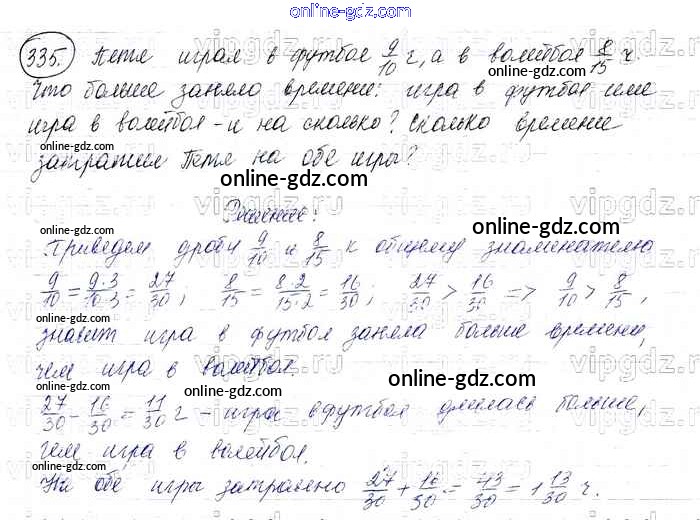 online-gdz.com
335. Петя играл в футбол 9/10 ч, а в волейбол 8/15 ч.
online-gdz.com
Что больше заняло времени: игра в футбол или
игра в волейбол – и на сколько? Сколько времени
затратил Петя на обе игры?
online-gdz.com
vipgdz.com
Решение:
online-gdz.com
Приведем дроби 9/10 и 8/15 к общему знаменателю
9/10 = 9·3/10·3 = 27/30; 8/15 = 8·2/15·2 = 16/30; 27/30 > 16/30 => 9/10 > 8/15,
online-gdz.com
значит игра в футбол заняла больше времени,
чем игра в волейбол.
online-gdz.com
online-gdz.com
27/30 - 16/30 = 11/30 ч – игра в футбол длилась больше,
чем игра в волейбол.
online-gdz.com
online-gdz.com
На обе игры затрачено 27/30 + 16/30 = 43/30 = 1 13/30 ч.
online-gdz.com